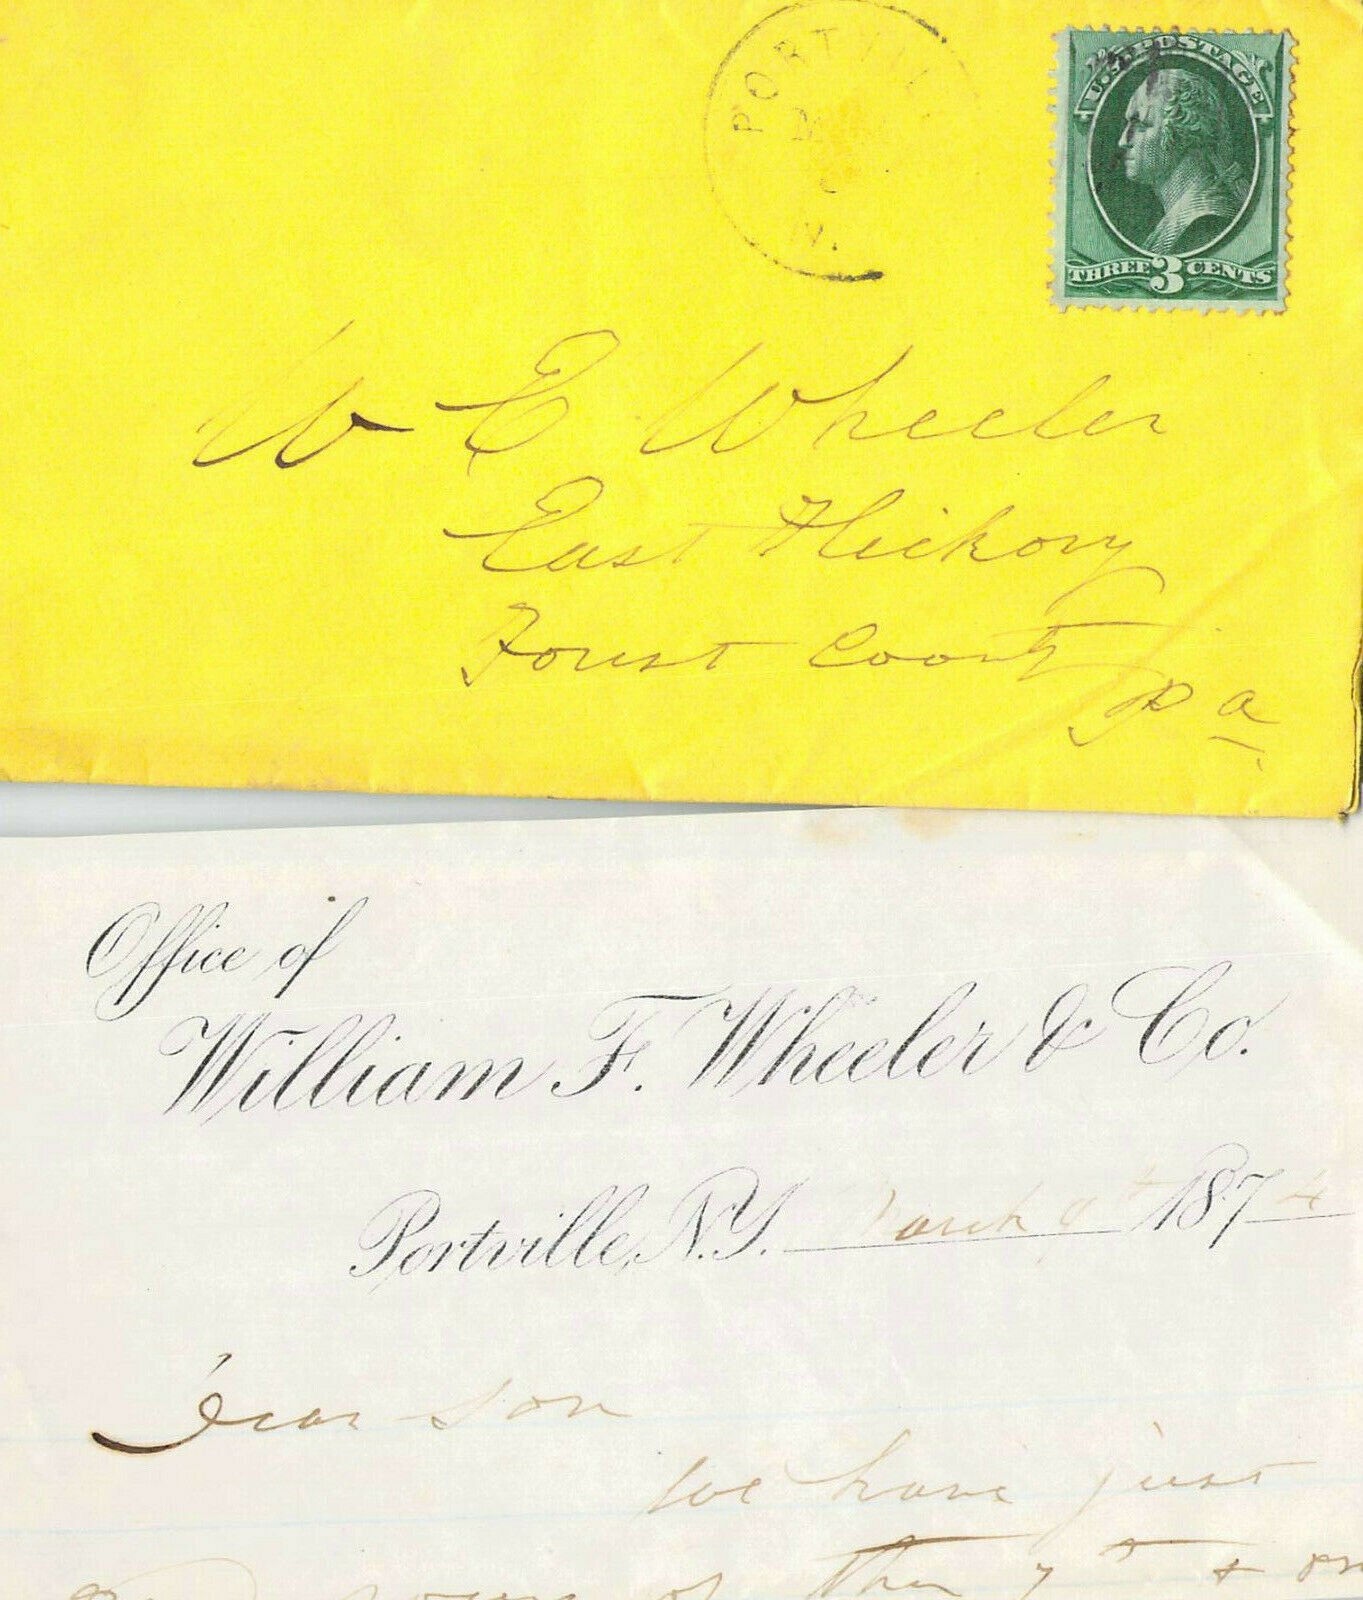 PORTVILL
N.
U.S. POSTAGE
THREE 3 CENTS
W E Wheeler
East Hickory
Forest County
Pa
Office of
William F. Wheeler & Co.
Portville, N.Y. March 9th 1874
Dear son
We have just
of the 7th & on